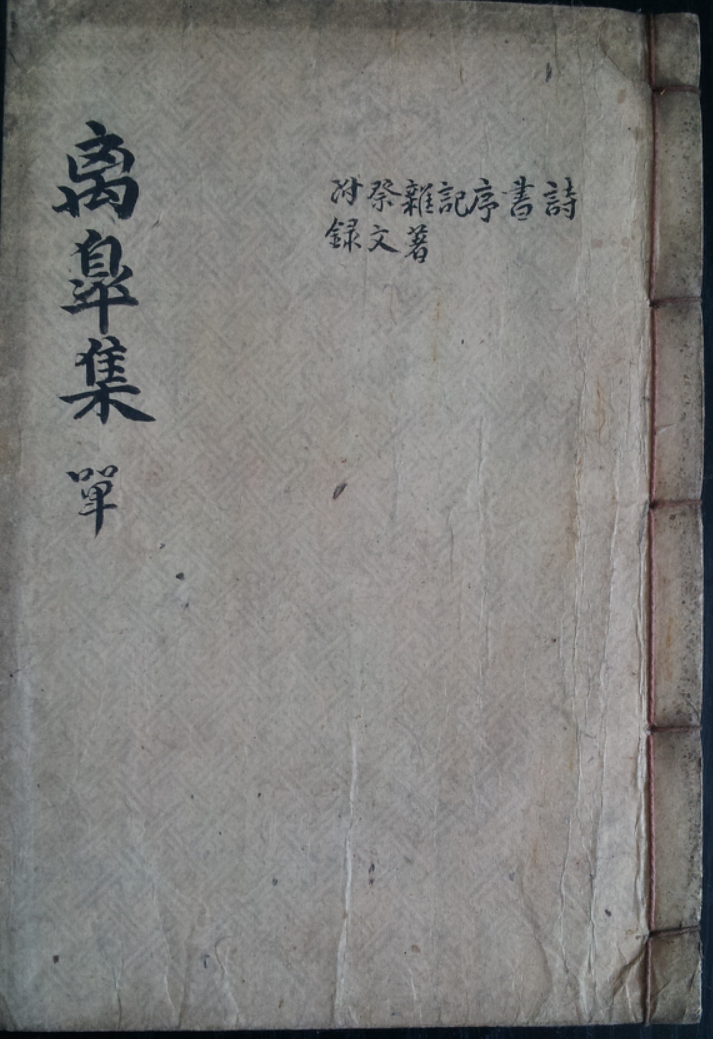 詩
書
序
記
雜著
祭文
附録
离皐集 單